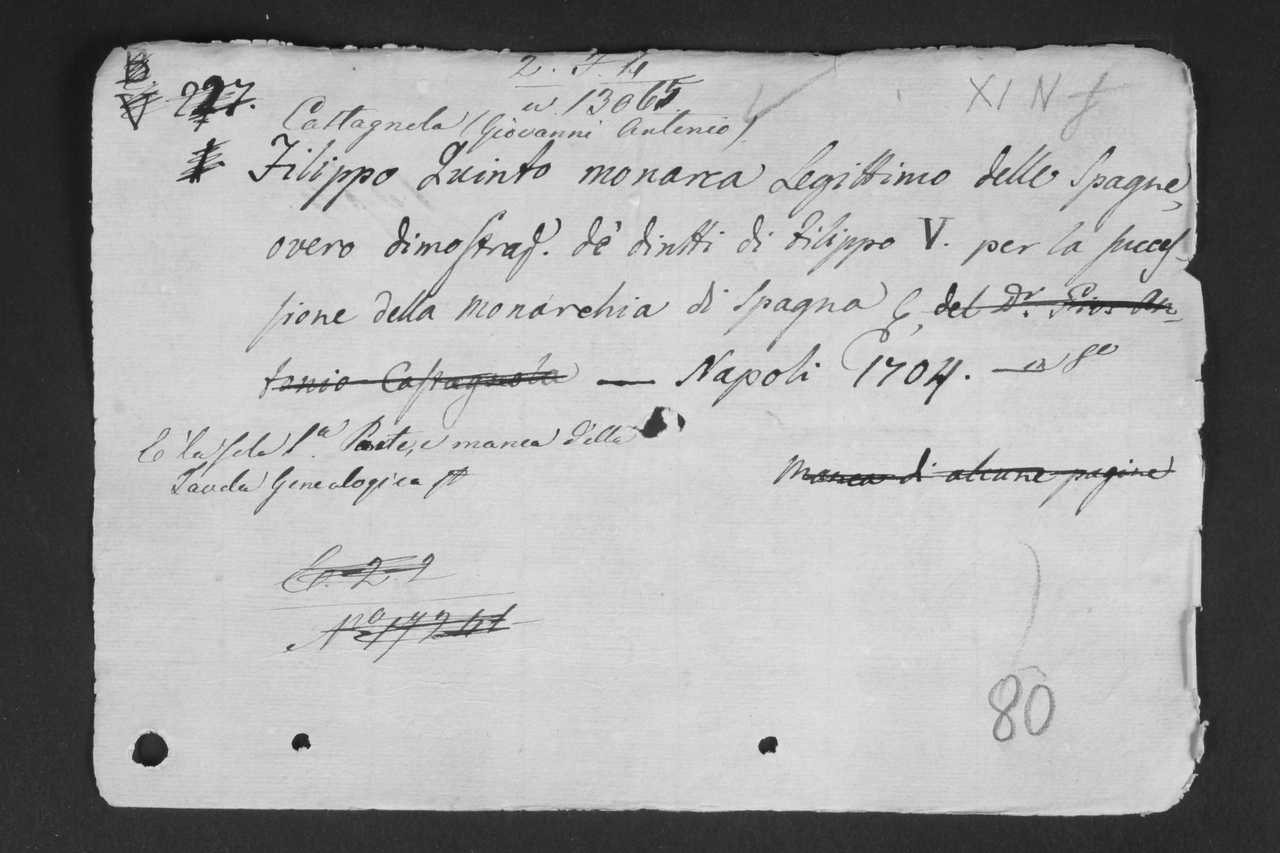 2. F. 14
227. n. 13065.
XI N f
Castagnola (Giovanni Antonio)
Filippo Quinto monarca Legittimo delle Spagne,
overo dimostraz. de' diritti di Filippo V. per la succes-
sione della Monarchia di Spagna &, del Dr. Gio: An-
tonio Castagnola — Napoli 1704. — in 8o
È la sola 1.a Parte, e manca della
Tavola Genealogica
Manca di alcune pagine
No
80